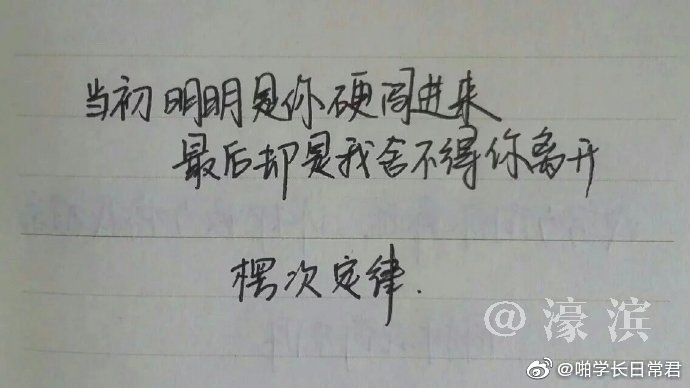 当初明明是你硬闯进来
最后却是我舍不得你离开
楞次定律.
@濠滨
@啪学长日常君